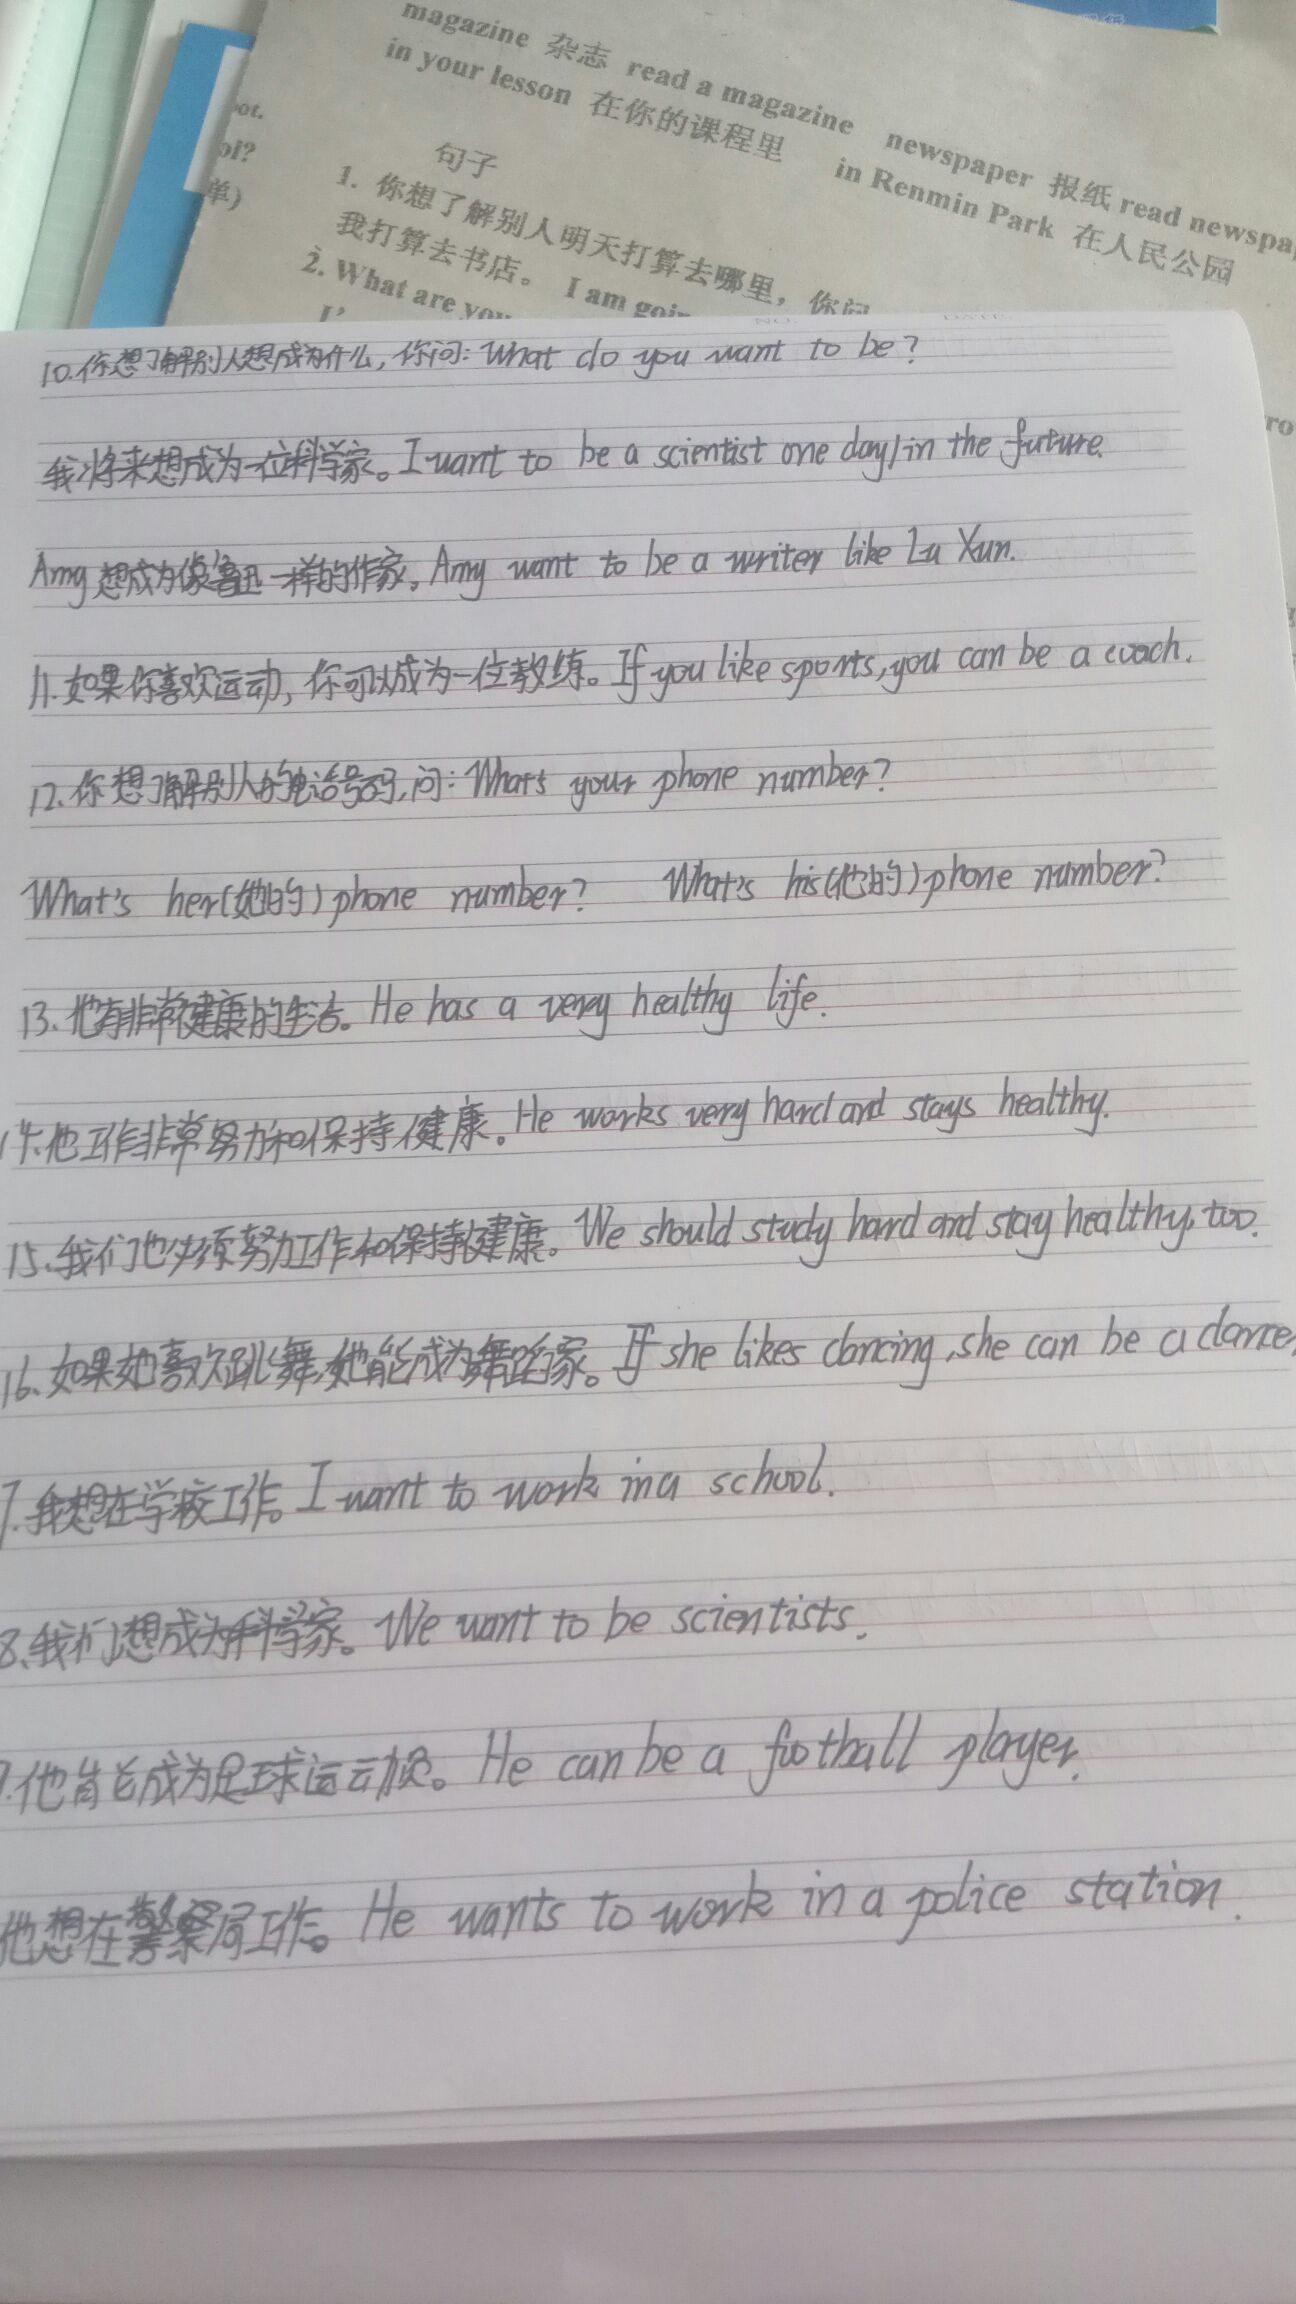 magazine 杂志 read a magazine newspaper 报纸 read newspa
in your lesson 在你的课程里 in Renmin Park 在人民公园
句子
1. 你想了解别人明天打算去哪里，你问
我打算去书店。 I am goin
2. What are you
I'
ot.
ol?
单)
10.你想了解别人想成为什么,你问: What do you want to be?
我将来想成为一位科学家。I want to be a scientist one day/in the future.
Amy想成为像鲁迅一样的作家。Amy want to be a writer like Lu Xun.
11.如果你喜欢运动,你可以成为一位教练。If you like sports,you can be a coach.
12.你想了解别人的电话号码,问: What's your phone number?
What's her(她的)phone number? What's his(他的)phone number?
13.他有非常健康的生活。He has a very healthy life.
14.他工作非常努力和保持健康。He works very hard and stays healthy.
15.我们也必须努力工作和保持健康。We should study hard and stay healthy, too.
16.如果她喜欢跳舞,她能成为舞蹈家。If she likes dancing,she can be a dance
7.我想在学校工作。I want to work in a school.
8.我们想成为科学家。We want to be scientists.
9.他能成为足球运动员。He can be a football player.
他想在警察局工作。He wants to work in a police station.